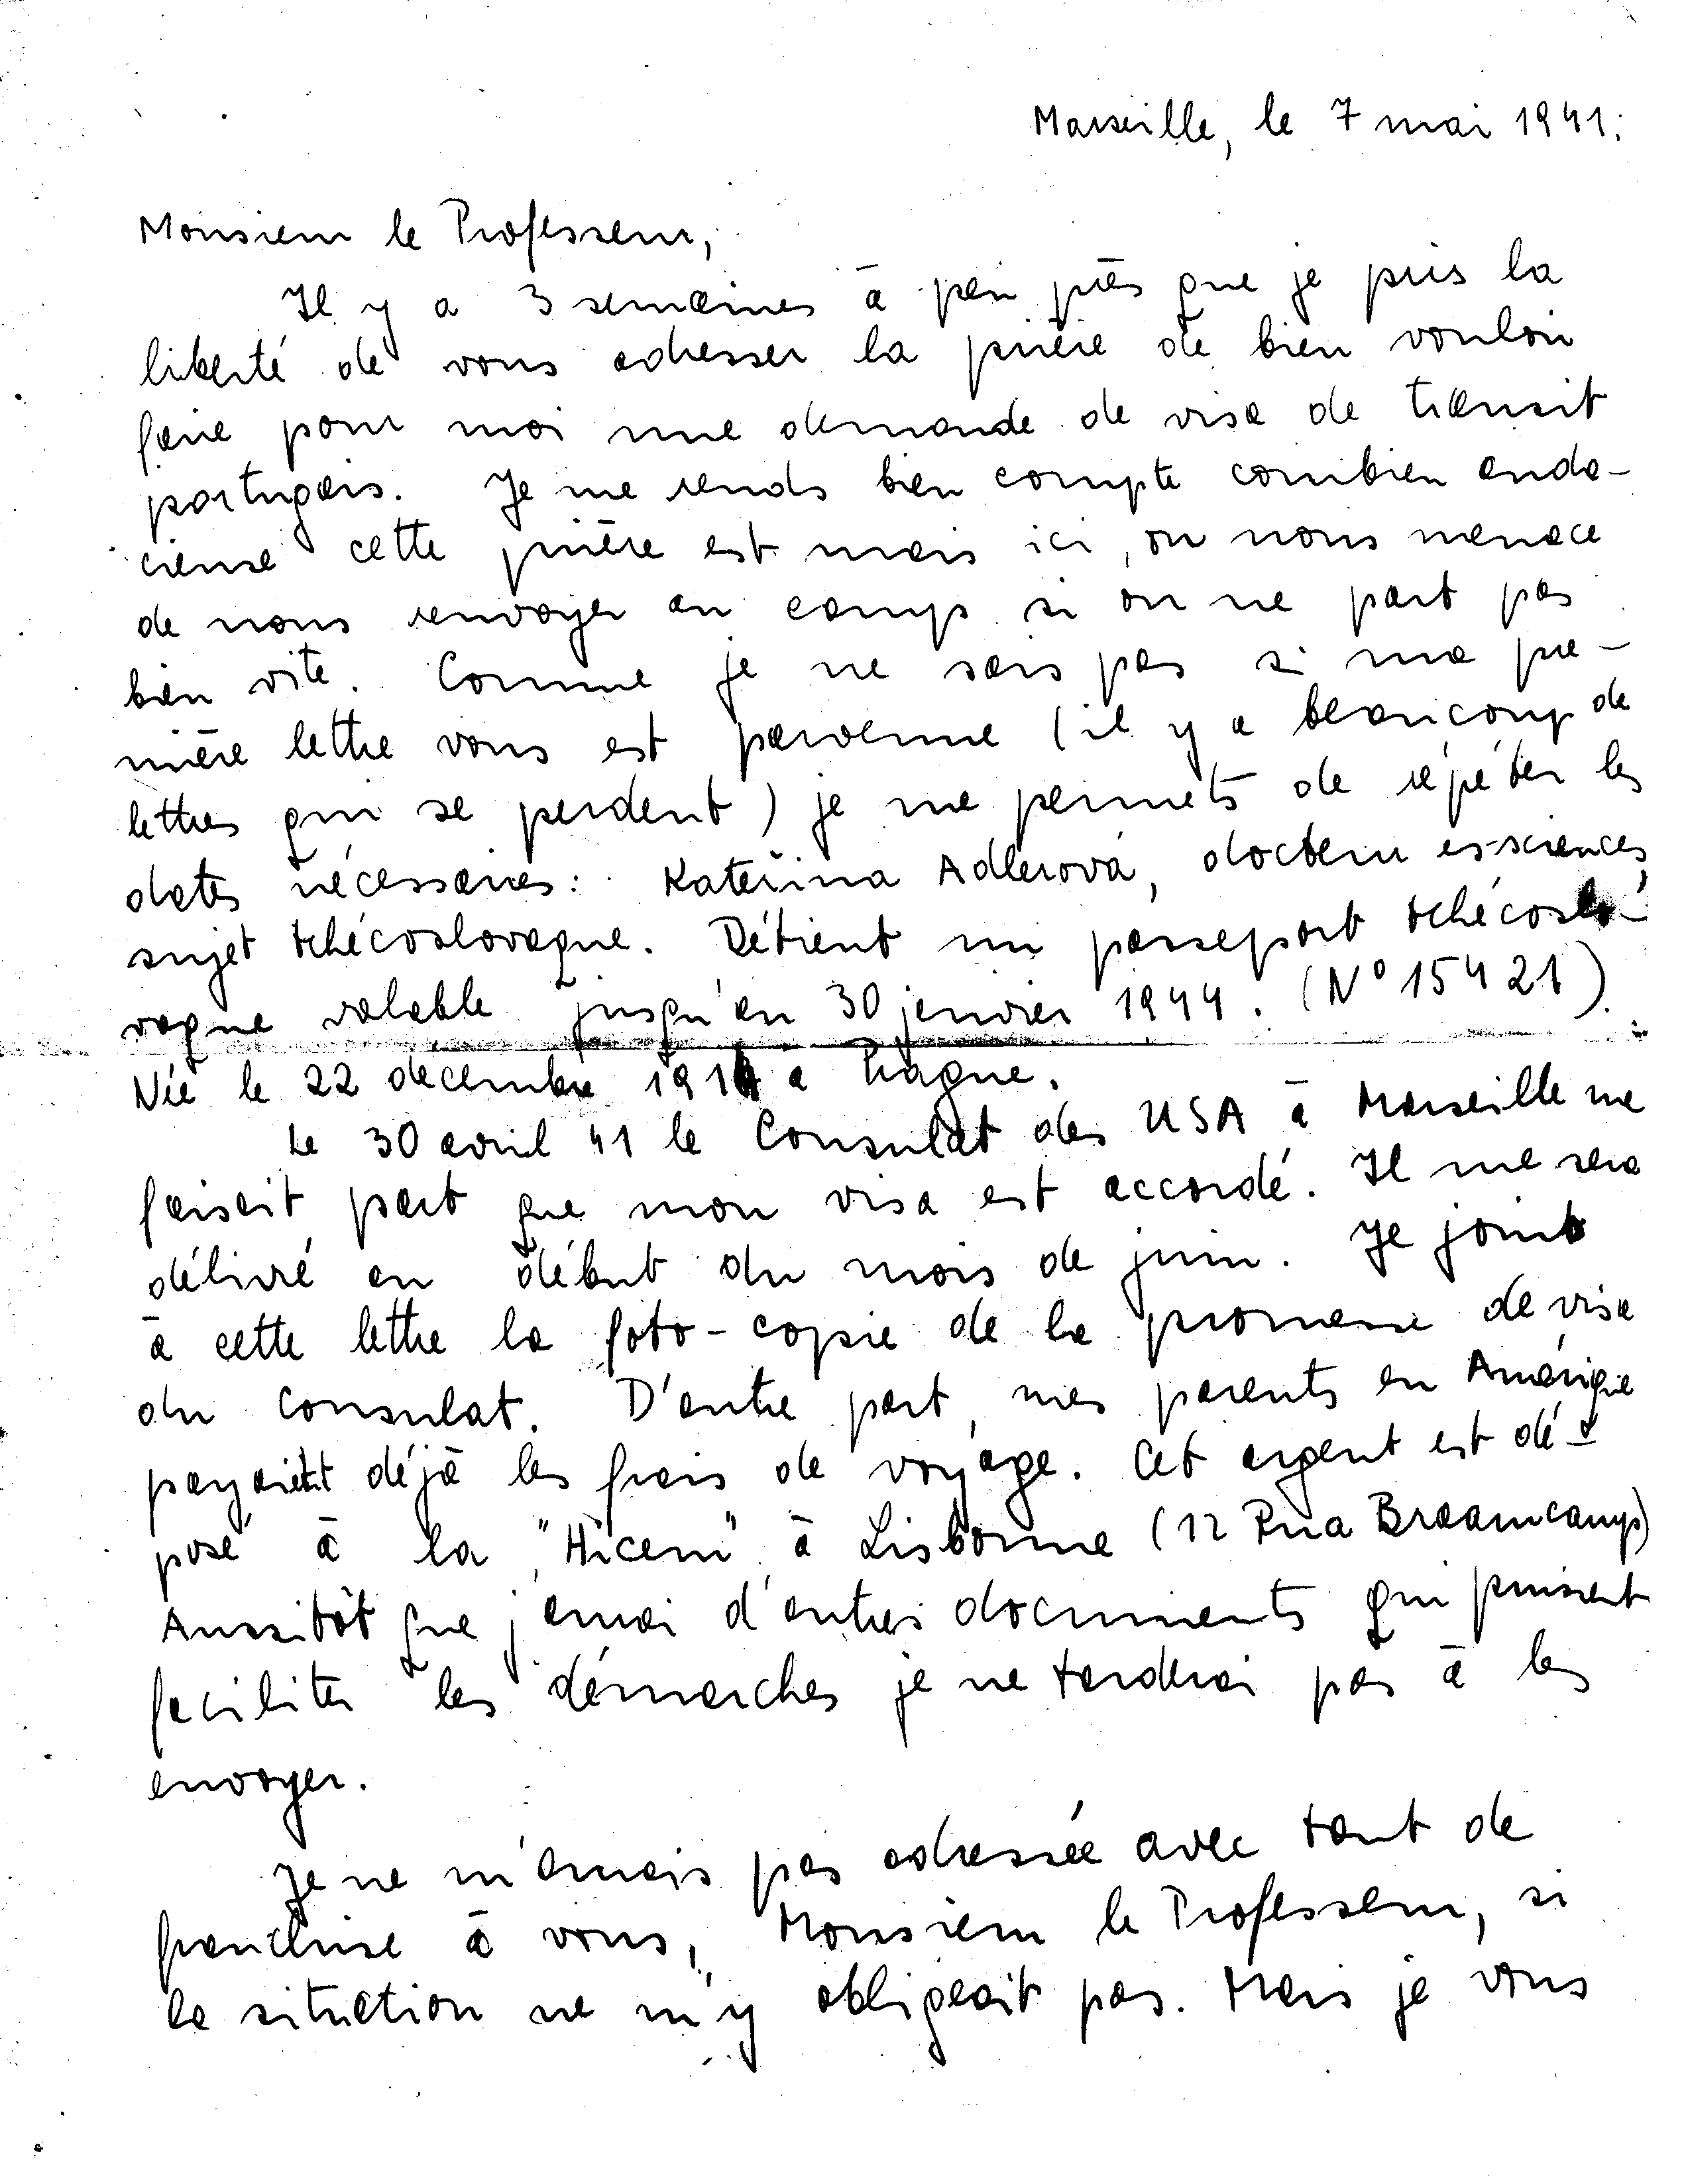 Marseille, le 7 mai 1941.
Monsieur le Professeur,
Il y a 3 semaines à peu près que je pris la
liberté de vous adresser la prière de bien vouloir
faire pour moi une demande de visa de transit
portugais. Je me rends bien compte combien auda-
cieuse cette prière est mais ici, on nous menace
de nous renvoyer au camp si on ne part pas
bien vite. Comme je ne sais pas si ma pre-
mière lettre vous est parvenue (il y a beaucoup de
lettres qui se perdent) je me permets de répéter les
dates nécessaires: Kateřina Adlerová, docteur es-sciences,
sujet tchécoslovaque. Détient un passeport tchécoslo-
vaque valable jusqu'au 30 janvier 1944. (N° 15421).
Née le 22 décembre à Prague.
Le 30 avril 41 le Consulat des USA à Marseille me
faisait part que mon visa est accordé. Il me sera
délivré au début du mois de juin. Je joins
à cette lettre la foto-copie de la promesse de visa
du Consulat. D'autre part, mes parents en Amérique
payaient déjà les frais de voyage. Cet argent est dé-
posé à la "Hicem" à Lisbonne (12 Rua Braamcamp)
Aussitôt que j'aurai d'autres documents qui puissent
faciliter les démarches je ne tarderai pas à les
envoyer.
Je ne m'aurais pas adressée avec tant de
franchise à vous, Monsieur le Professeur, si
la situation ne m'y obligeait pas. Mais je vous